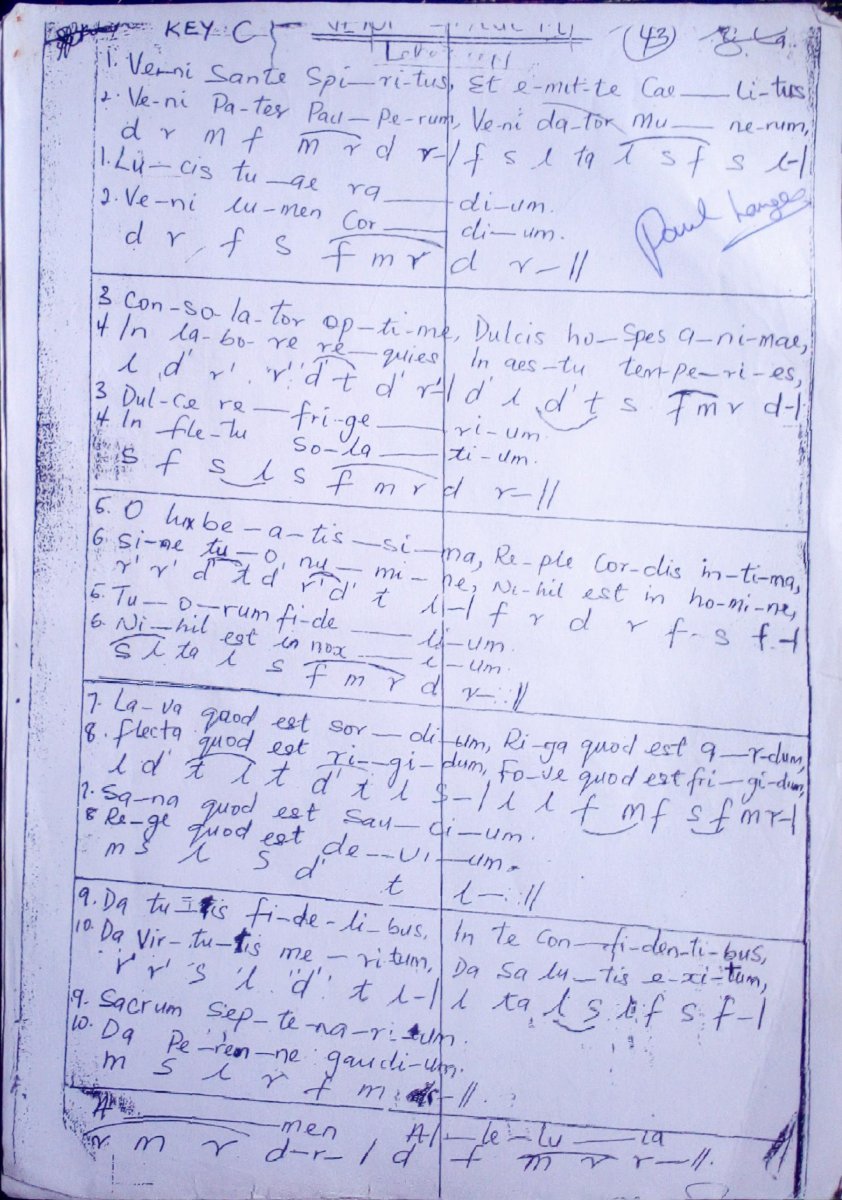 KEY C
43
1. Ve-ni Sante Spi-ri-tus, Et e-mit-te Cae — li-tus
2. Ve-ni Pa-ter Pau-pe-rum, Ve-ni da-tor Mu — ne-rum,
d r m f m r d r-| f s l ta l s f s l-|
1. Lu-cis tu-ae ra — di-um.
2. Ve-ni lu-men Cor — di-um.
d r f s f m r d r-//
Paul
3 Con-so-la-tor op-ti-me, Dulcis ho-spes a-ni-mae,
4 In la-bo-re re-quies In aes-tu tem-pe-ri-es,
l d' r' r' d' t d' r'-| d' l d' t s f m r d-|
3 Dul-ce re — fri-ge — ri-um
4 In fle-tu so-la — ti-um.
s f s l s f m r d r-//
5. O lux be-a-tis-si-ma, Re-ple Cor-dis in-ti-ma,
6 Si-ne tu-o nu-mi-ne, Ni-hil est in ho-mi-ne,
r' r' d' t d' r' d' t l-| f r d r f-s f-|
5. Tu-o-rum fi-de — li-um.
6. Ni-hil est in nox — i-um.
s l ta l s f m r d r-//
7. La-va quod est sor-di-um, Ri-ga quod est a-r-dum,
8. flecta quod est ri-gi-dum, Fo-ve quod est fri-gi-dum,
l d' t l t d' t l s-| l l f m f s f m r-|
7. Sa-na quod est Sau-ci-um.
8 Re-ge quod est de-vi-um.
m s l s d' t l-//
9. Da tu-is fi-de-li-bus, In te Con-fi-den-ti-bus,
10. Da Vir-tu-tis me-ritum, Da Sa lu-tis e-xi-tum,
r' r' s l d' t l-| l ta l s l f s f-|
9. Sacrum Sep-te-na-ri-um.
10. Da Pe-ren-ne gaudi-um.
m s l r f m r-//
A — men Al-le-lu — ia
r m r d-r-/ d f m r r-//.